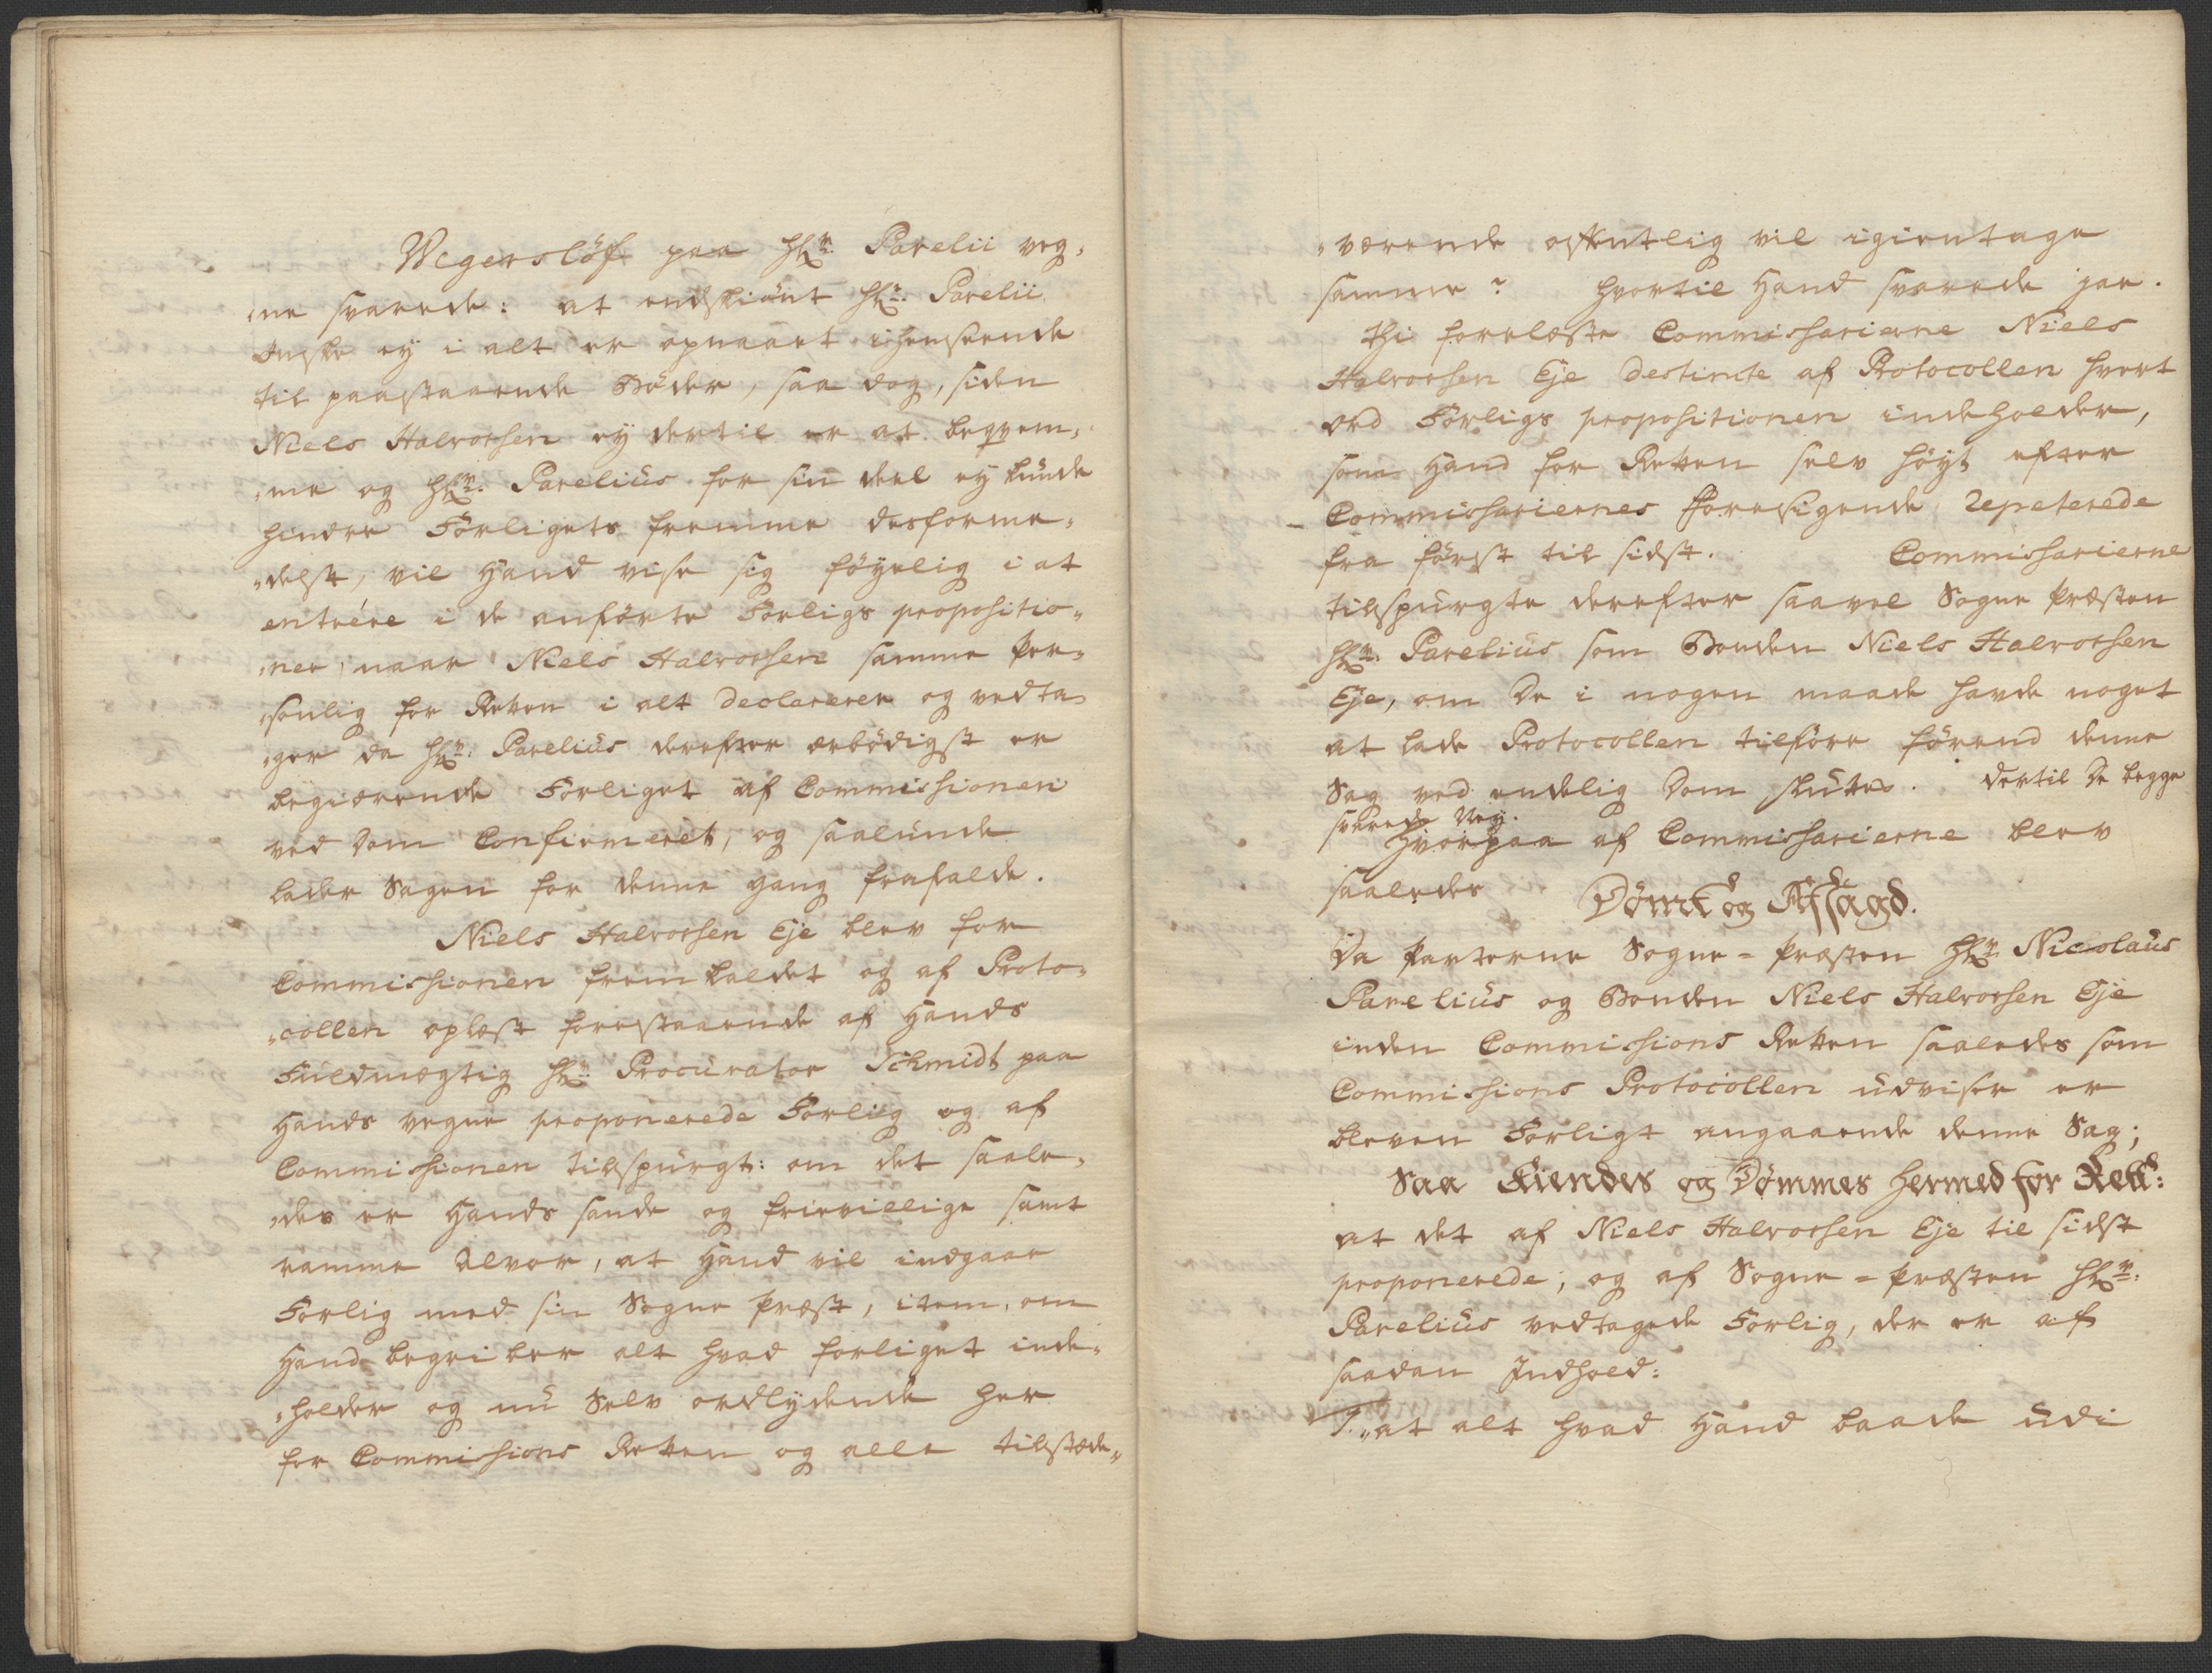 Wegersløf paa Hr. Parelii veg„
„ne svarede: at endskiønt Hr. Parelii
Ønske ey i alt er opnaaet i henseende
til paastaaende Bøder, saa dog, siden
Niels Halvorsen ey dertil er at beqvem„
„me og Hr. Parelius for sin deel ey kunde
hindre Forligets fremme desforme„
„delst, vil Hand vise sig føyelig i at
entrére i de anførte Forligs propositio„
„ner, naar Niels Halvorsen samme Per„
„sonlig for Retten i alt declarerer og vedta„
„ger da Hr. Parelius derefter ærbødigst er
begiærende Forliget af Commissionen
ved Dom Confirmeret, og saalunde
lader Sagen for denne gang frafalde.
Niels Halvorsen Eje blev for
Commissionen fremkaldet og af Proto„
„collen oplæst forestaaende af Hands
Fuldmægtig Hr. Procurator Schmidt paa
Hands vegne proponerede Forliig og af
Commissionen tilspurgt: om det saale„
„des er Hands sande og frievillige samt
ramme Alvor, at Hand vil indgaae
Forlig med sin Sogne Præst, item, om
Hand begriber alt hvad forliget inde„
„holder og nu Selv ordlydende her
for Commissions Retten og alle tilstæde„
„værende offentlig vil igientage
samme? hvortil Hand svarede jae.
Thi forelæste Commissarierne Niels
Halvorsen Eje Destincte af Protocollen hvert
ord Forligs propositionen indeholder,
som Hand for Retten selv høyt efter
Commissariernes Foresigende repeterede
fra først til sidst. Commissarierne
tilspurgte derefter saavel Sogne Præsten
Hr. Parelius som Bonden Niels Halvorsen
Eje, om De i nogen maade havde noget
at lade Protocollen tilføre førend denne
Sag ved endelig Dom sluttes. Dertil De begge
svarede Ney.
Hvorpaa af Commissarierne blev
saaledes Dømt og Afsagd.
Da Parterne Sogne-Præsten Hr. Nicolaus
Parelius og Bonden Niels Halvorsen Eje
inden Commissions Retten saaledes som
Commissions Protocollen udviser er
bleven Forligt angaaende denne Sag;
Saa Kiendes og Dømmes hermed for Rett:
at det af Niels Halvorsen Eje til sidst
proponerede, og af Sogne-Præsten Hr.
Parelius vedtagede Forlig, der er af
saadan Indhold:
1. „at alt hvad Hand baade udi